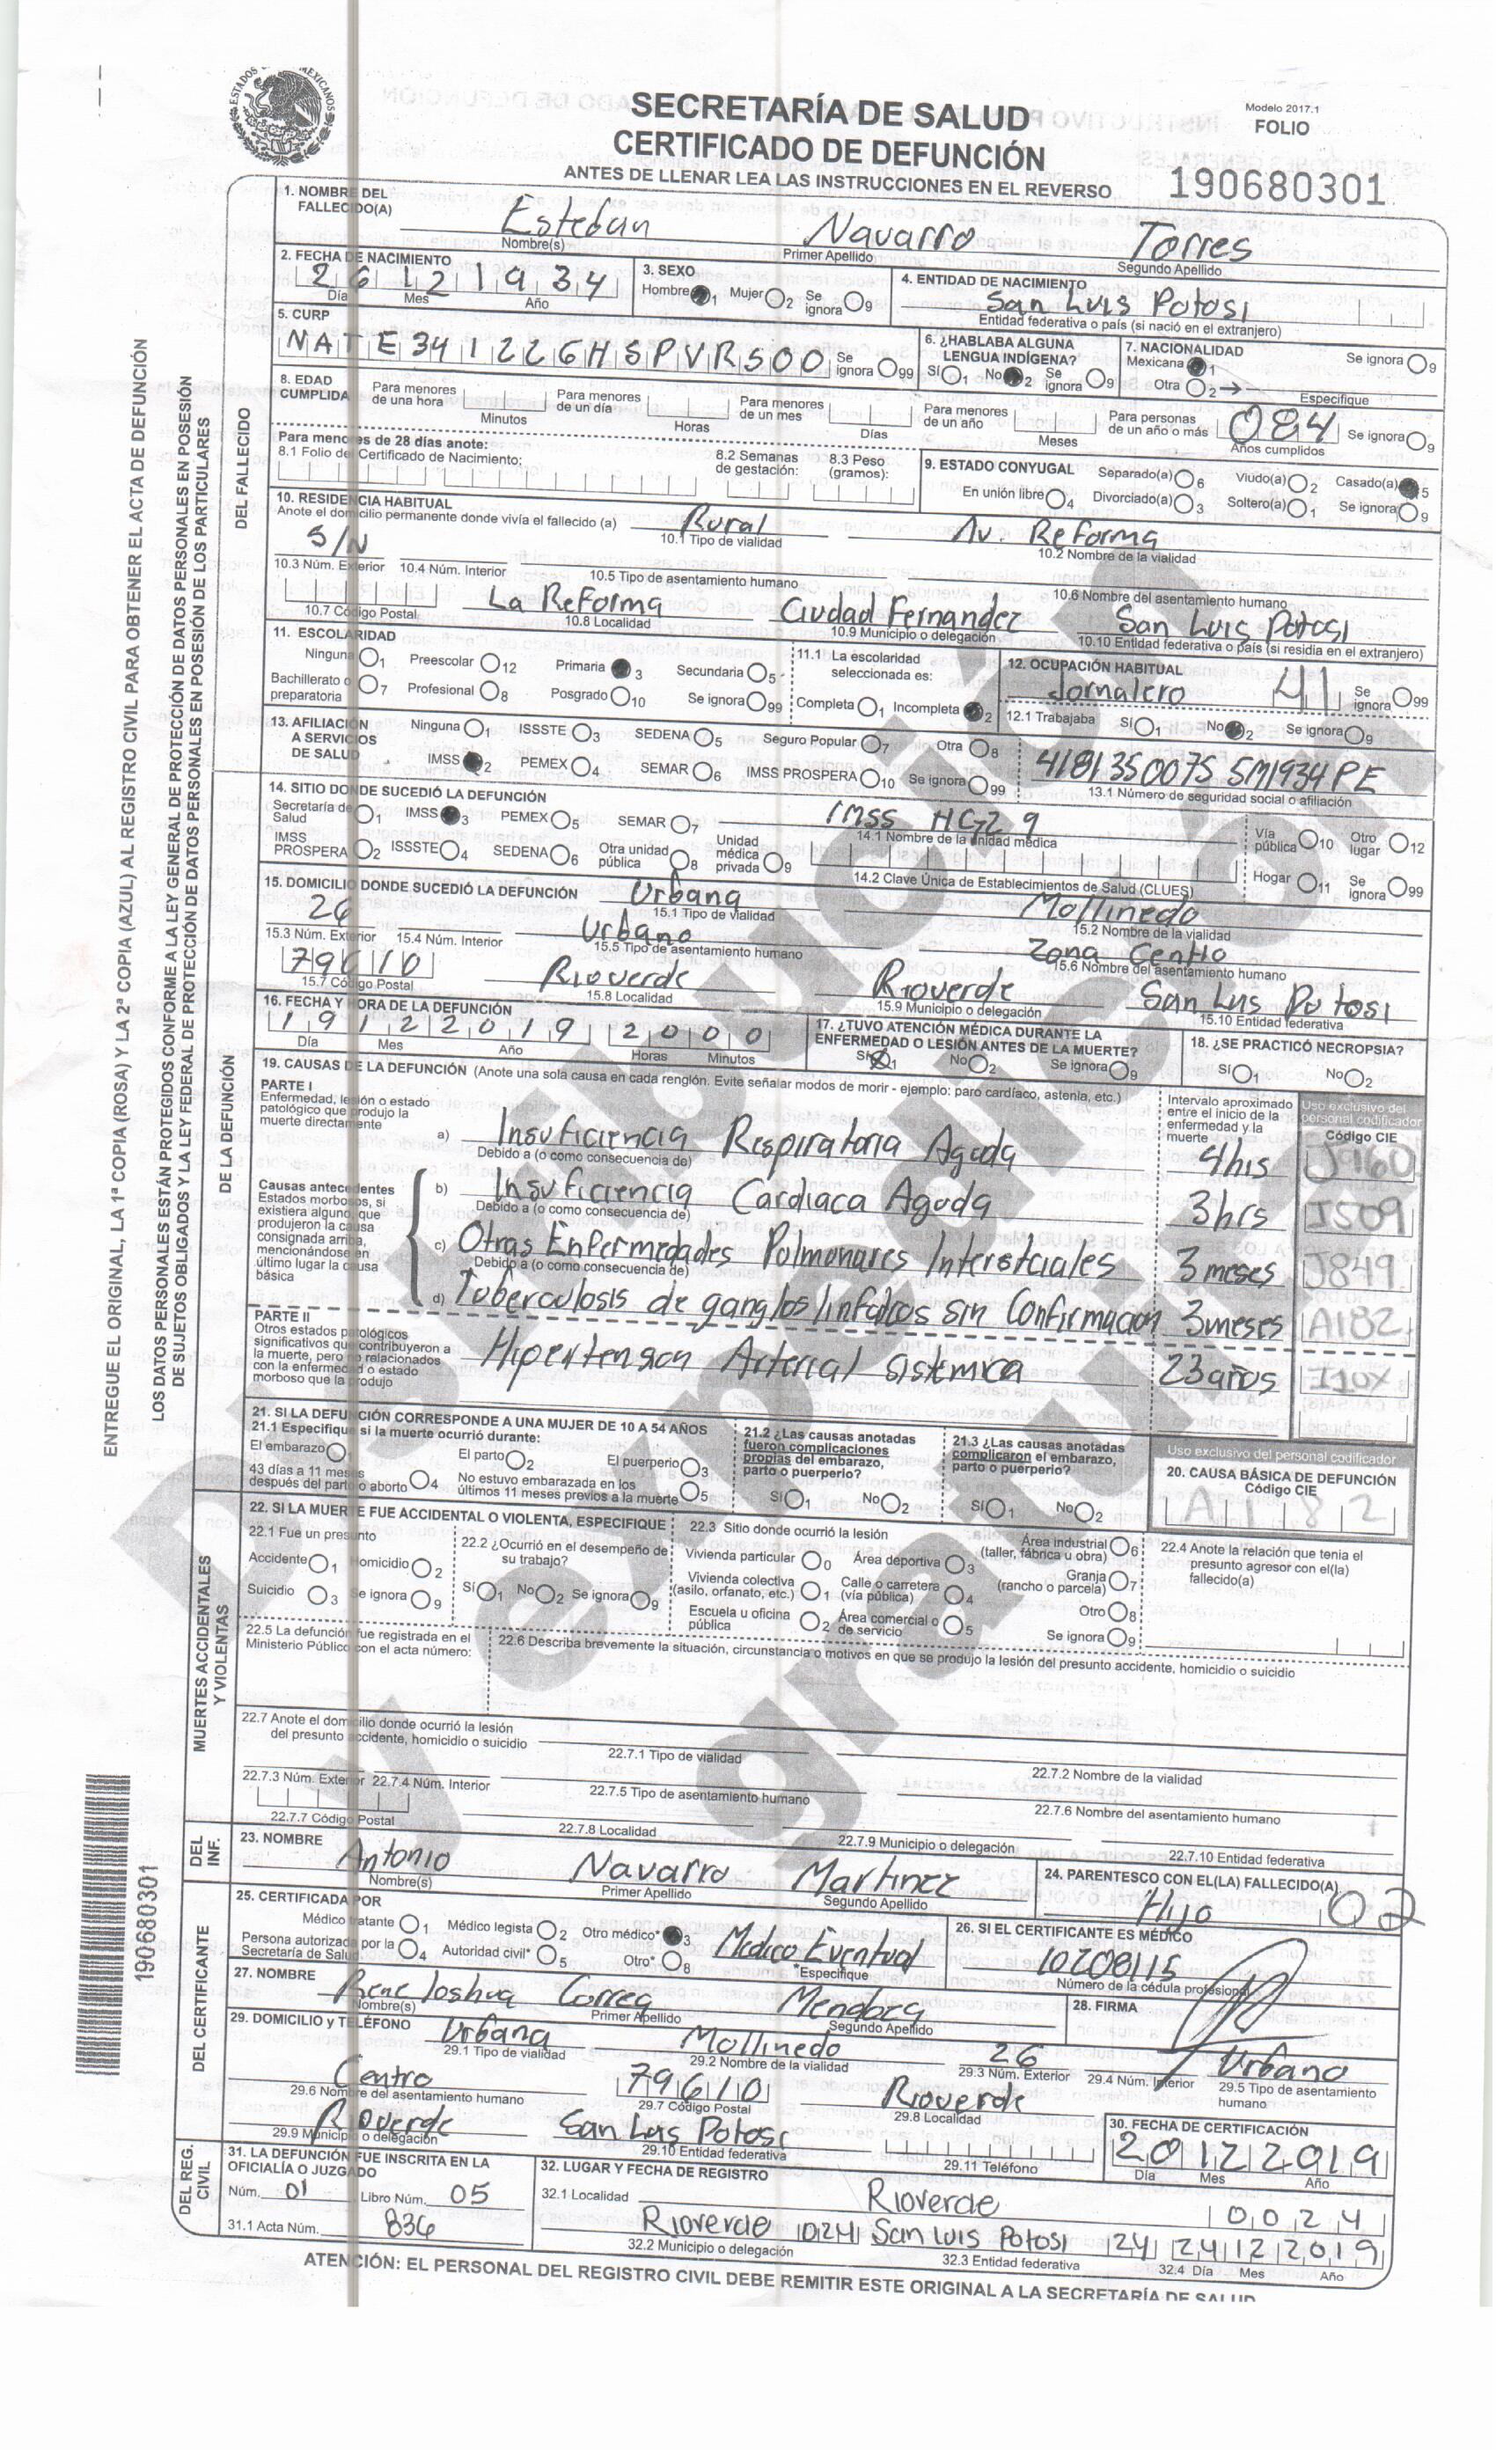 ESTADOS UNIDOS MEXICANOS
SECRETARÍA DE SALUD
CERTIFICADO DE DEFUNCIÓN
ANTES DE LLENAR LEA LAS INSTRUCCIONES EN EL REVERSO
Modelo 2017.1
FOLIO
190680301
ENTREGUE EL ORIGINAL, LA 1ª COPIA (ROSA) Y LA 2ª COPIA (AZUL) AL REGISTRO CIVIL PARA OBTENER EL ACTA DE DEFUNCIÓN
LOS DATOS PERSONALES ESTÁN PROTEGIDOS CONFORME A LA LEY GENERAL DE PROTECCIÓN DE DATOS PERSONALES EN POSESIÓN
DE SUJETOS OBLIGADOS Y LA LEY FEDERAL DE PROTECCIÓN DE DATOS PERSONALES EN POSESIÓN DE LOS PARTICULARES
Distribución
y expedición
gratuita
DEL FALLECIDO
1. NOMBRE DEL FALLECIDO(A) Esteban Navarro Torres
Nombre(s) Primer Apellido Segundo Apellido
2. FECHA DE NACIMIENTO 26 12 1934
Día Mes Año
3. SEXO
Hombre 1 Mujer 2 Se ignora 9
4. ENTIDAD DE NACIMIENTO
San Luis Potosi
Entidad federativa o país (si nació en el extranjero)
5. CURP
NATE341226HSPVRS00 Se ignora 99
6. ¿HABLABA ALGUNA LENGUA INDÍGENA?
Sí 1 No 2 Se ignora 9
7. NACIONALIDAD
Mexicana 1 Se ignora 9
Otra 2
Especifique
8. EDAD CUMPLIDA
Para menores de una hora Minutos
Para menores de un día Horas
Para menores de un mes Días
Para menores de un año Meses
Para personas de un año o más 084 Años cumplidos Se ignora 9
Para menores de 28 días anote:
8.1 Folio de Certificado de Nacimiento:
8.2 Semanas de gestación:
8.3 Peso (gramos):
9. ESTADO CONYUGAL Separado(a) 6 Viudo(a) 2 Casado(a) 5
En unión libre 4 Divorciado(a) 3 Soltero(a) 1 Se ignora 9
10. RESIDENCIA HABITUAL
Anote el domicilio permanente donde vivía el fallecido (a) Rural Av. Reforma
10.1 Tipo de vialidad 10.2 Nombre de la vialidad
S/N
10.3 Núm. Exterior 10.4 Núm. Interior 10.5 Tipo de asentamiento humano 10.6 Nombre del asentamiento humano
La Reforma Ciudad Fernandez San Luis Potosi
10.7 Código Postal 10.8 Localidad 10.9 Municipio o delegación 10.10 Entidad federativa o país (si residía en el extranjero)
11. ESCOLARIDAD
Ninguna 1 Preescolar 12 Primaria 3 Secundaria 5
Bachillerato o preparatoria 7 Profesional 8 Posgrado 10 Se ignora 99
11.1 La escolaridad seleccionada es:
Completa 1 Incompleta 2
12. OCUPACIÓN HABITUAL
Jornalero 41 Se ignora 99
12.1 Trabajaba Sí 1 No 2 Se ignora 9
13. AFILIACIÓN A SERVICIOS DE SALUD
Ninguna 1 ISSSTE 3 SEDENA 5 Seguro Popular 7 Otra 8
IMSS 2 PEMEX 4 SEMAR 6 IMSS PROSPERA 10 Se ignora 99
4181350075 5M1934PE
13.1 Número de seguridad social o afiliación
DE LA DEFUNCIÓN
14. SITIO DONDE SUCEDIÓ LA DEFUNCIÓN
Secretaría de Salud 1 IMSS 3 PEMEX 5 SEMAR 7
IMSS PROSPERA 2 ISSSTE 4 SEDENA 6 Otra unidad pública 8 Unidad médica privada 9
IMSS HGZ 9
14.1 Nombre de la unidad médica
14.2 Clave Única de Establecimientos de Salud (CLUES)
Vía pública 10 Otro lugar 12
Hogar 11 Se ignora 99
15. DOMICILIO DONDE SUCEDIÓ LA DEFUNCIÓN Urbana Mollinedo
15.1 Tipo de vialidad 15.2 Nombre de la vialidad
26 Urbano Zona Centro
15.3 Núm. Exterior 15.4 Núm. Interior 15.5 Tipo de asentamiento humano 15.6 Nombre del asentamiento humano
79610 Rioverde Rioverde San Luis Potosi
15.7 Código Postal 15.8 Localidad 15.9 Municipio o delegación 15.10 Entidad federativa
16. FECHA Y HORA DE LA DEFUNCIÓN
19 12 2019 20 00
Día Mes Año Horas Minutos
17. ¿TUVO ATENCIÓN MÉDICA DURANTE LA ENFERMEDAD O LESIÓN ANTES DE LA MUERTE?
Sí 1 No 2 Se ignora 9
18. ¿SE PRACTICÓ NECROPSIA?
Sí 1 No 2
19. CAUSAS DE LA DEFUNCIÓN (Anote una sola causa en cada renglón. Evite señalar modos de morir - ejemplo: paro cardíaco, astenia, etc.)
Intervalo aproximado entre el inicio de la enfermedad y la muerte
Uso exclusivo del personal codificador
Código CIE
PARTE I
Enfermedad, lesión o estado patológico que produjo la muerte directamente
a) Insuficiencia Respiratoria Aguda 4hrs J960
Debido a (o como consecuencia de)
Causas antecedentes
Estados morbosos, si existiera alguno, que produjeron la causa consignada arriba, mencionándose en último lugar la causa básica
b) Insuficiencia Cardiaca Aguda 3hrs I509
Debido a (o como consecuencia de)
c) Otras Enfermedades Pulmonares Intersticiales 3 meses J849
Debido a (o como consecuencia de)
d) Tuberculosis de ganglios linfaticos sin Confirmacion 3meses A182
PARTE II
Otros estados patológicos significativos que contribuyeron a la muerte, pero no relacionados con la enfermedad o estado morboso que la produjo
Hipertension Arterial sistemica 23 años I10X
21. SI LA DEFUNCIÓN CORRESPONDE A UNA MUJER DE 10 A 54 AÑOS
21.1 Especifique si la muerte ocurrió durante:
El embarazo 1 El parto 2 El puerperio 3
43 días a 11 meses después del parto o aborto 4 No estuvo embarazada en los últimos 11 meses previos a la muerte 5
21.2 ¿Las causas anotadas fueron complicaciones propias del embarazo, parto o puerperio?
Sí 1 No 2
21.3 ¿Las causas anotadas complicaron el embarazo, parto o puerperio?
Sí 1 No 2
Uso exclusivo del personal codificador
20. CAUSA BÁSICA DE DEFUNCIÓN
Código CIE
A182
MUERTES ACCIDENTALES Y VIOLENTAS
22. SI LA MUERTE FUE ACCIDENTAL O VIOLENTA, ESPECIFIQUE
22.1 Fue un presunto
Accidente 1 Homicidio 2
Suicidio 3 Se ignora 9
22.2 ¿Ocurrió en el desempeño de su trabajo?
Sí 1 No 2 Se ignora 9
22.3 Sitio donde ocurrió la lesión
Vivienda particular 0 Área deportiva 3 Área industrial (taller, fábrica u obra) 6
Vivienda colectiva (asilo, orfanato, etc.) 1 Calle o carretera (vía pública) 4 Granja (rancho o parcela) 7
Escuela u oficina pública 2 Área comercial o de servicio 5 Otro 8
Se ignora 9
22.4 Anote la relación que tenía el presunto agresor con el(la) fallecido(a)
22.5 La defunción fue registrada en el Ministerio Público con el acta número:
22.6 Describa brevemente la situación, circunstancia o motivos en que se produjo la lesión del presunto accidente, homicidio o suicidio
22.7 Anote el domicilio donde ocurrió la lesión del presunto accidente, homicidio o suicidio
22.7.1 Tipo de vialidad 22.7.2 Nombre de la vialidad
22.7.3 Núm. Exterior 22.7.4 Núm. Interior 22.7.5 Tipo de asentamiento humano 22.7.6 Nombre del asentamiento humano
22.7.7 Código Postal 22.7.8 Localidad 22.7.9 Municipio o delegación 22.7.10 Entidad federativa
DEL INF.
23. NOMBRE Antonio Navarro Martinez
Nombre(s) Primer Apellido Segundo Apellido
24. PARENTESCO CON EL(LA) FALLECIDO(A)
Hijo 02
DEL CERTIFICANTE
25. CERTIFICADA POR
Médico tratante 1 Médico legista 2 Otro médico* 3 Medico Eventual
Persona autorizada por la Secretaría de Salud 4 Autoridad civil* 5 Otro* 8 *Especifique
26. SI EL CERTIFICANTE ES MÉDICO
10208115
Número de la cédula profesional
27. NOMBRE Rene Joshua Correa Mendoza
Nombre(s) Primer Apellido Segundo Apellido
28. FIRMA
29. DOMICILIO y TELÉFONO Urbana Mollinedo 26 Urbano
29.1 Tipo de vialidad 29.2 Nombre de la vialidad 29.3 Núm. Exterior 29.4 Núm. Interior 29.5 Tipo de asentamiento humano
Centro 79610 Rioverde
29.6 Nombre del asentamiento humano 29.7 Código Postal 29.8 Localidad
Rioverde San Luis Potosi
29.9 Municipio o delegación 29.10 Entidad federativa 29.11 Teléfono
30. FECHA DE CERTIFICACIÓN
20 12 2019
Día Mes Año
DEL REG. CIVIL
31. LA DEFUNCIÓN FUE INSCRITA EN LA OFICIALÍA O JUZGADO
Núm. 01 Libro Núm. 05
31.1 Acta Núm. 836
32. LUGAR Y FECHA DE REGISTRO
32.1 Localidad Rioverde 0024
Rioverde 024 San Luis Potosi 24 24 12 2019
32.2 Municipio o delegación 32.3 Entidad federativa 32.4 Día Mes Año
ATENCIÓN: EL PERSONAL DEL REGISTRO CIVIL DEBE REMITIR ESTE ORIGINAL A LA SECRETARÍA DE SALUD
190680301